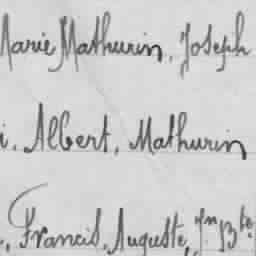 Marie Mathurin, Joseph
i, Albert, Mathurin
, Francis, Auguste, Jn Bte